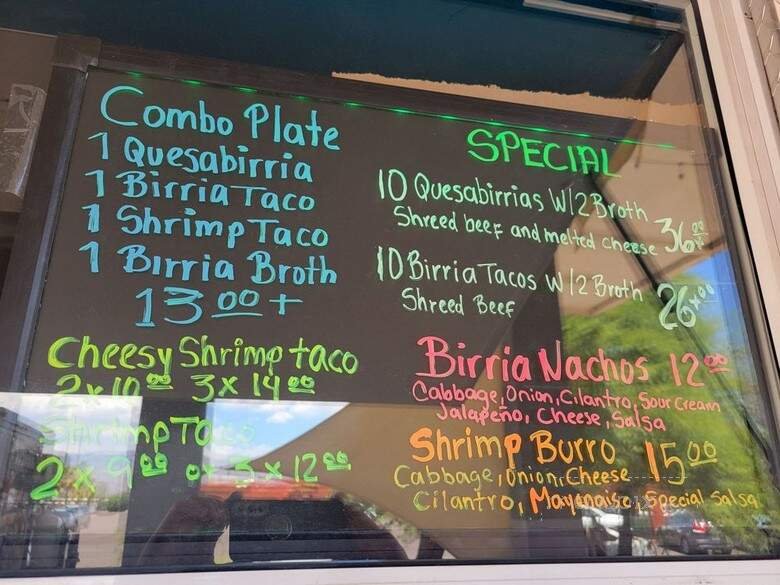 Combo Plate
1 Quesabirria
1 Birria Taco
1 Shrimp Taco
1 Birria Broth
13 00 +
Cheesy Shrimp taco
2 x 10 00 3 x 14 00
Shrimp Taco
2 x 9 00 or 3 x 12 00
SPECIAL
10 Quesabirrias W/2 Broth
Shreed beef and melted cheese 36 00
10 Birria Tacos W/2 Broth
Shreed Beef 26 00
Birria Nachos 12 00
Cabbage, Onion, Cilantro, Sour Cream
Jalapeño, Cheese, Salsa
Shrimp Burro 15 00
Cabbage, Onion, Cheese
Cilantro, Mayonaise, Special Salsa